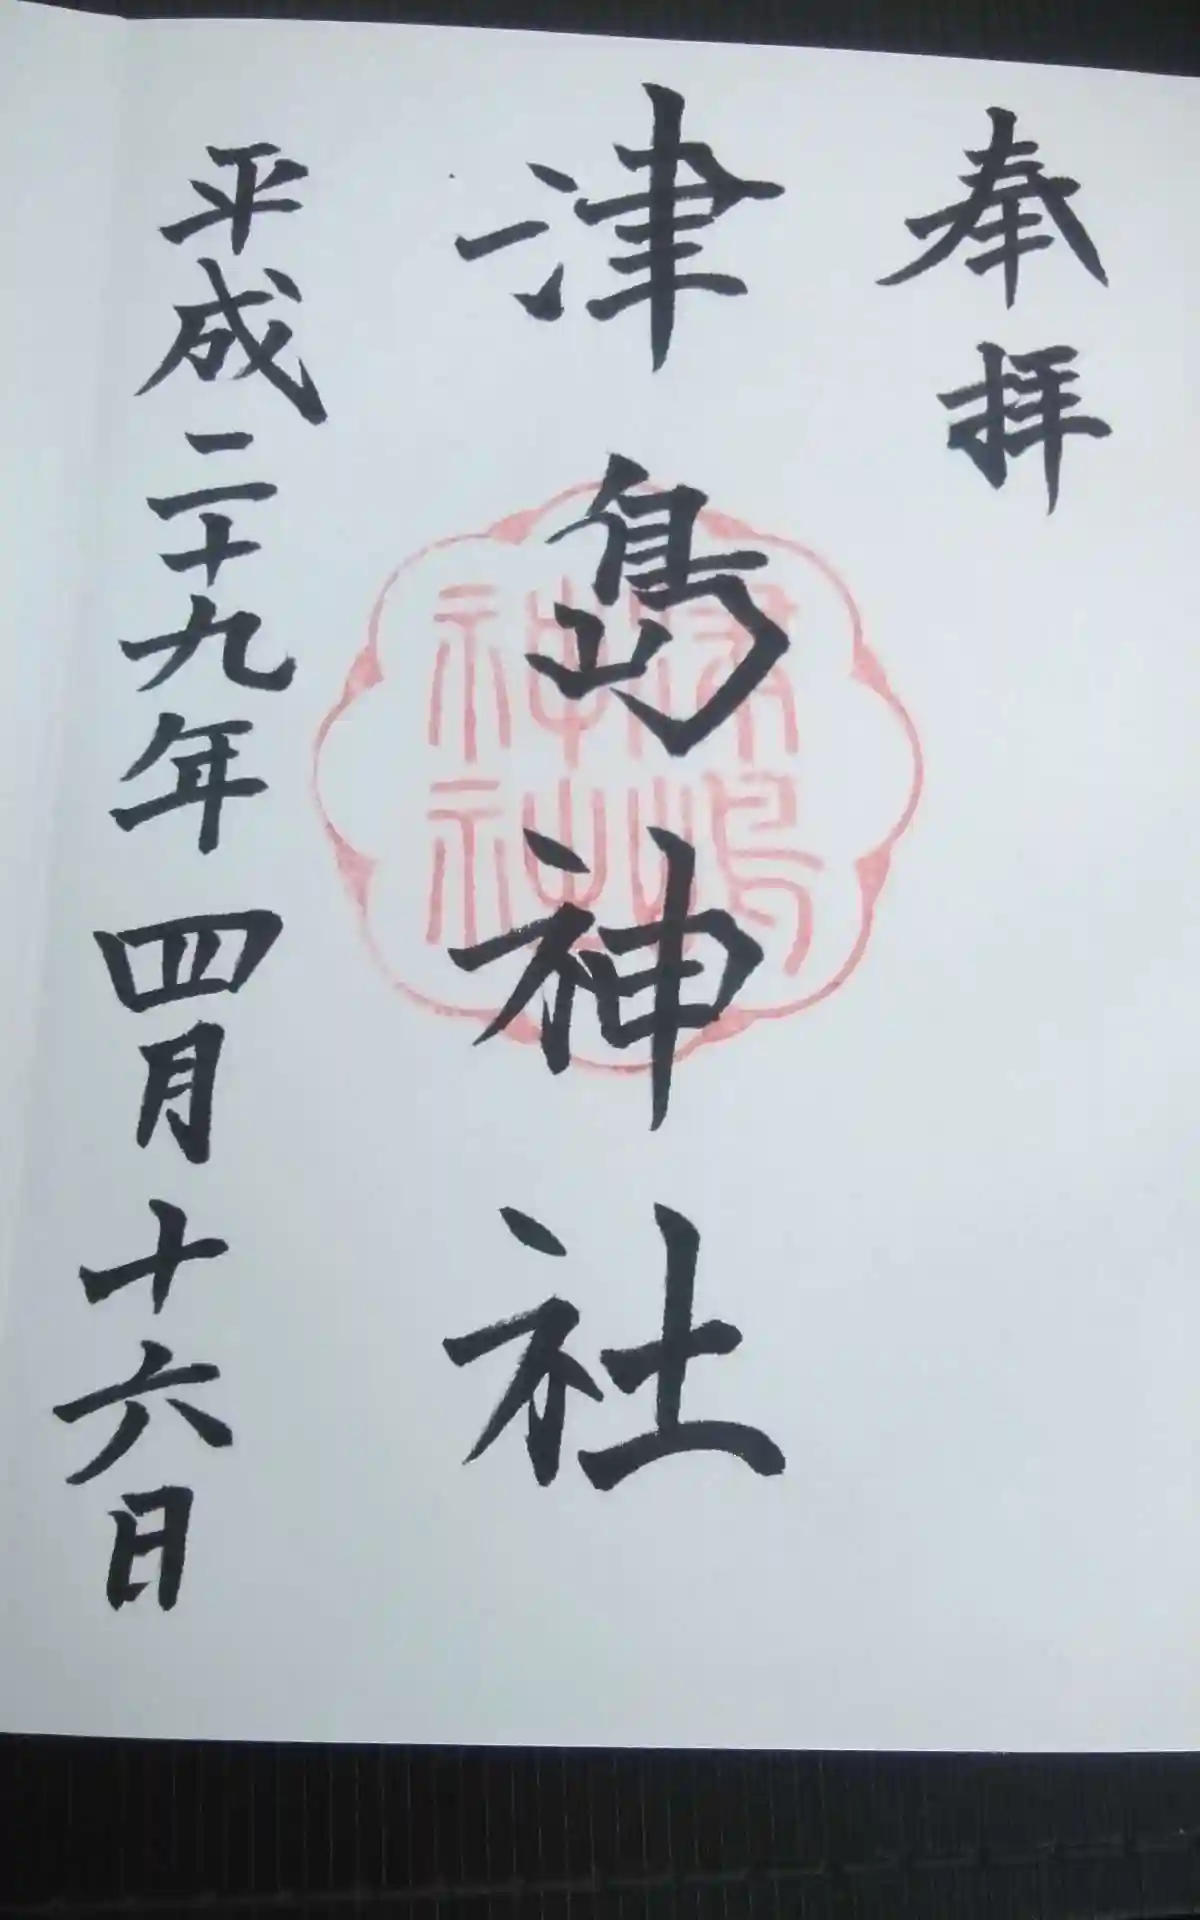 奉拝
津島神社
津嶋神社
平成二十九年四月十六日